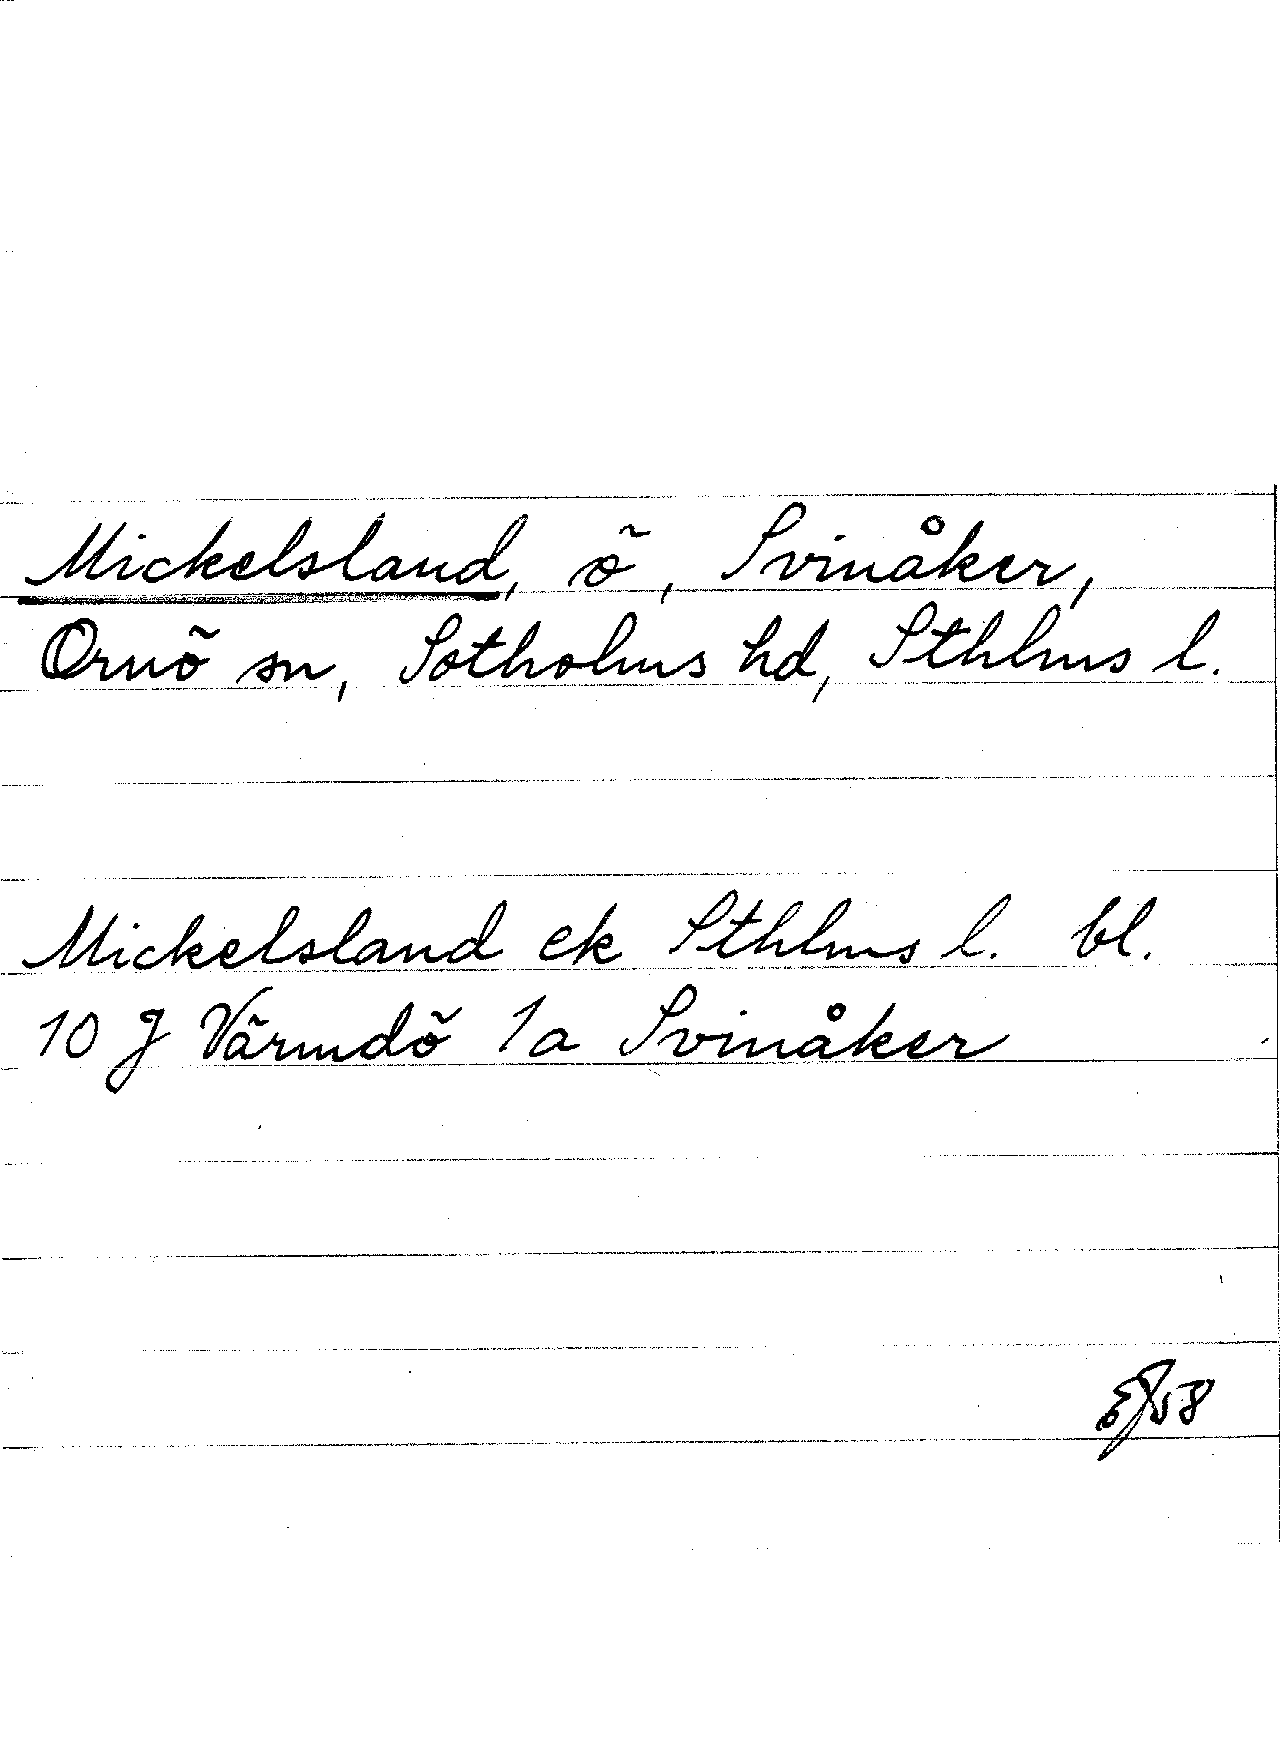 Mickelsland, ö, Svinåker,
Ornö sn, Sotholms hd, Sthlms l.
Mickelsland ek Sthlms l. bl.
10 J Värmdö 1a Svinåker
58